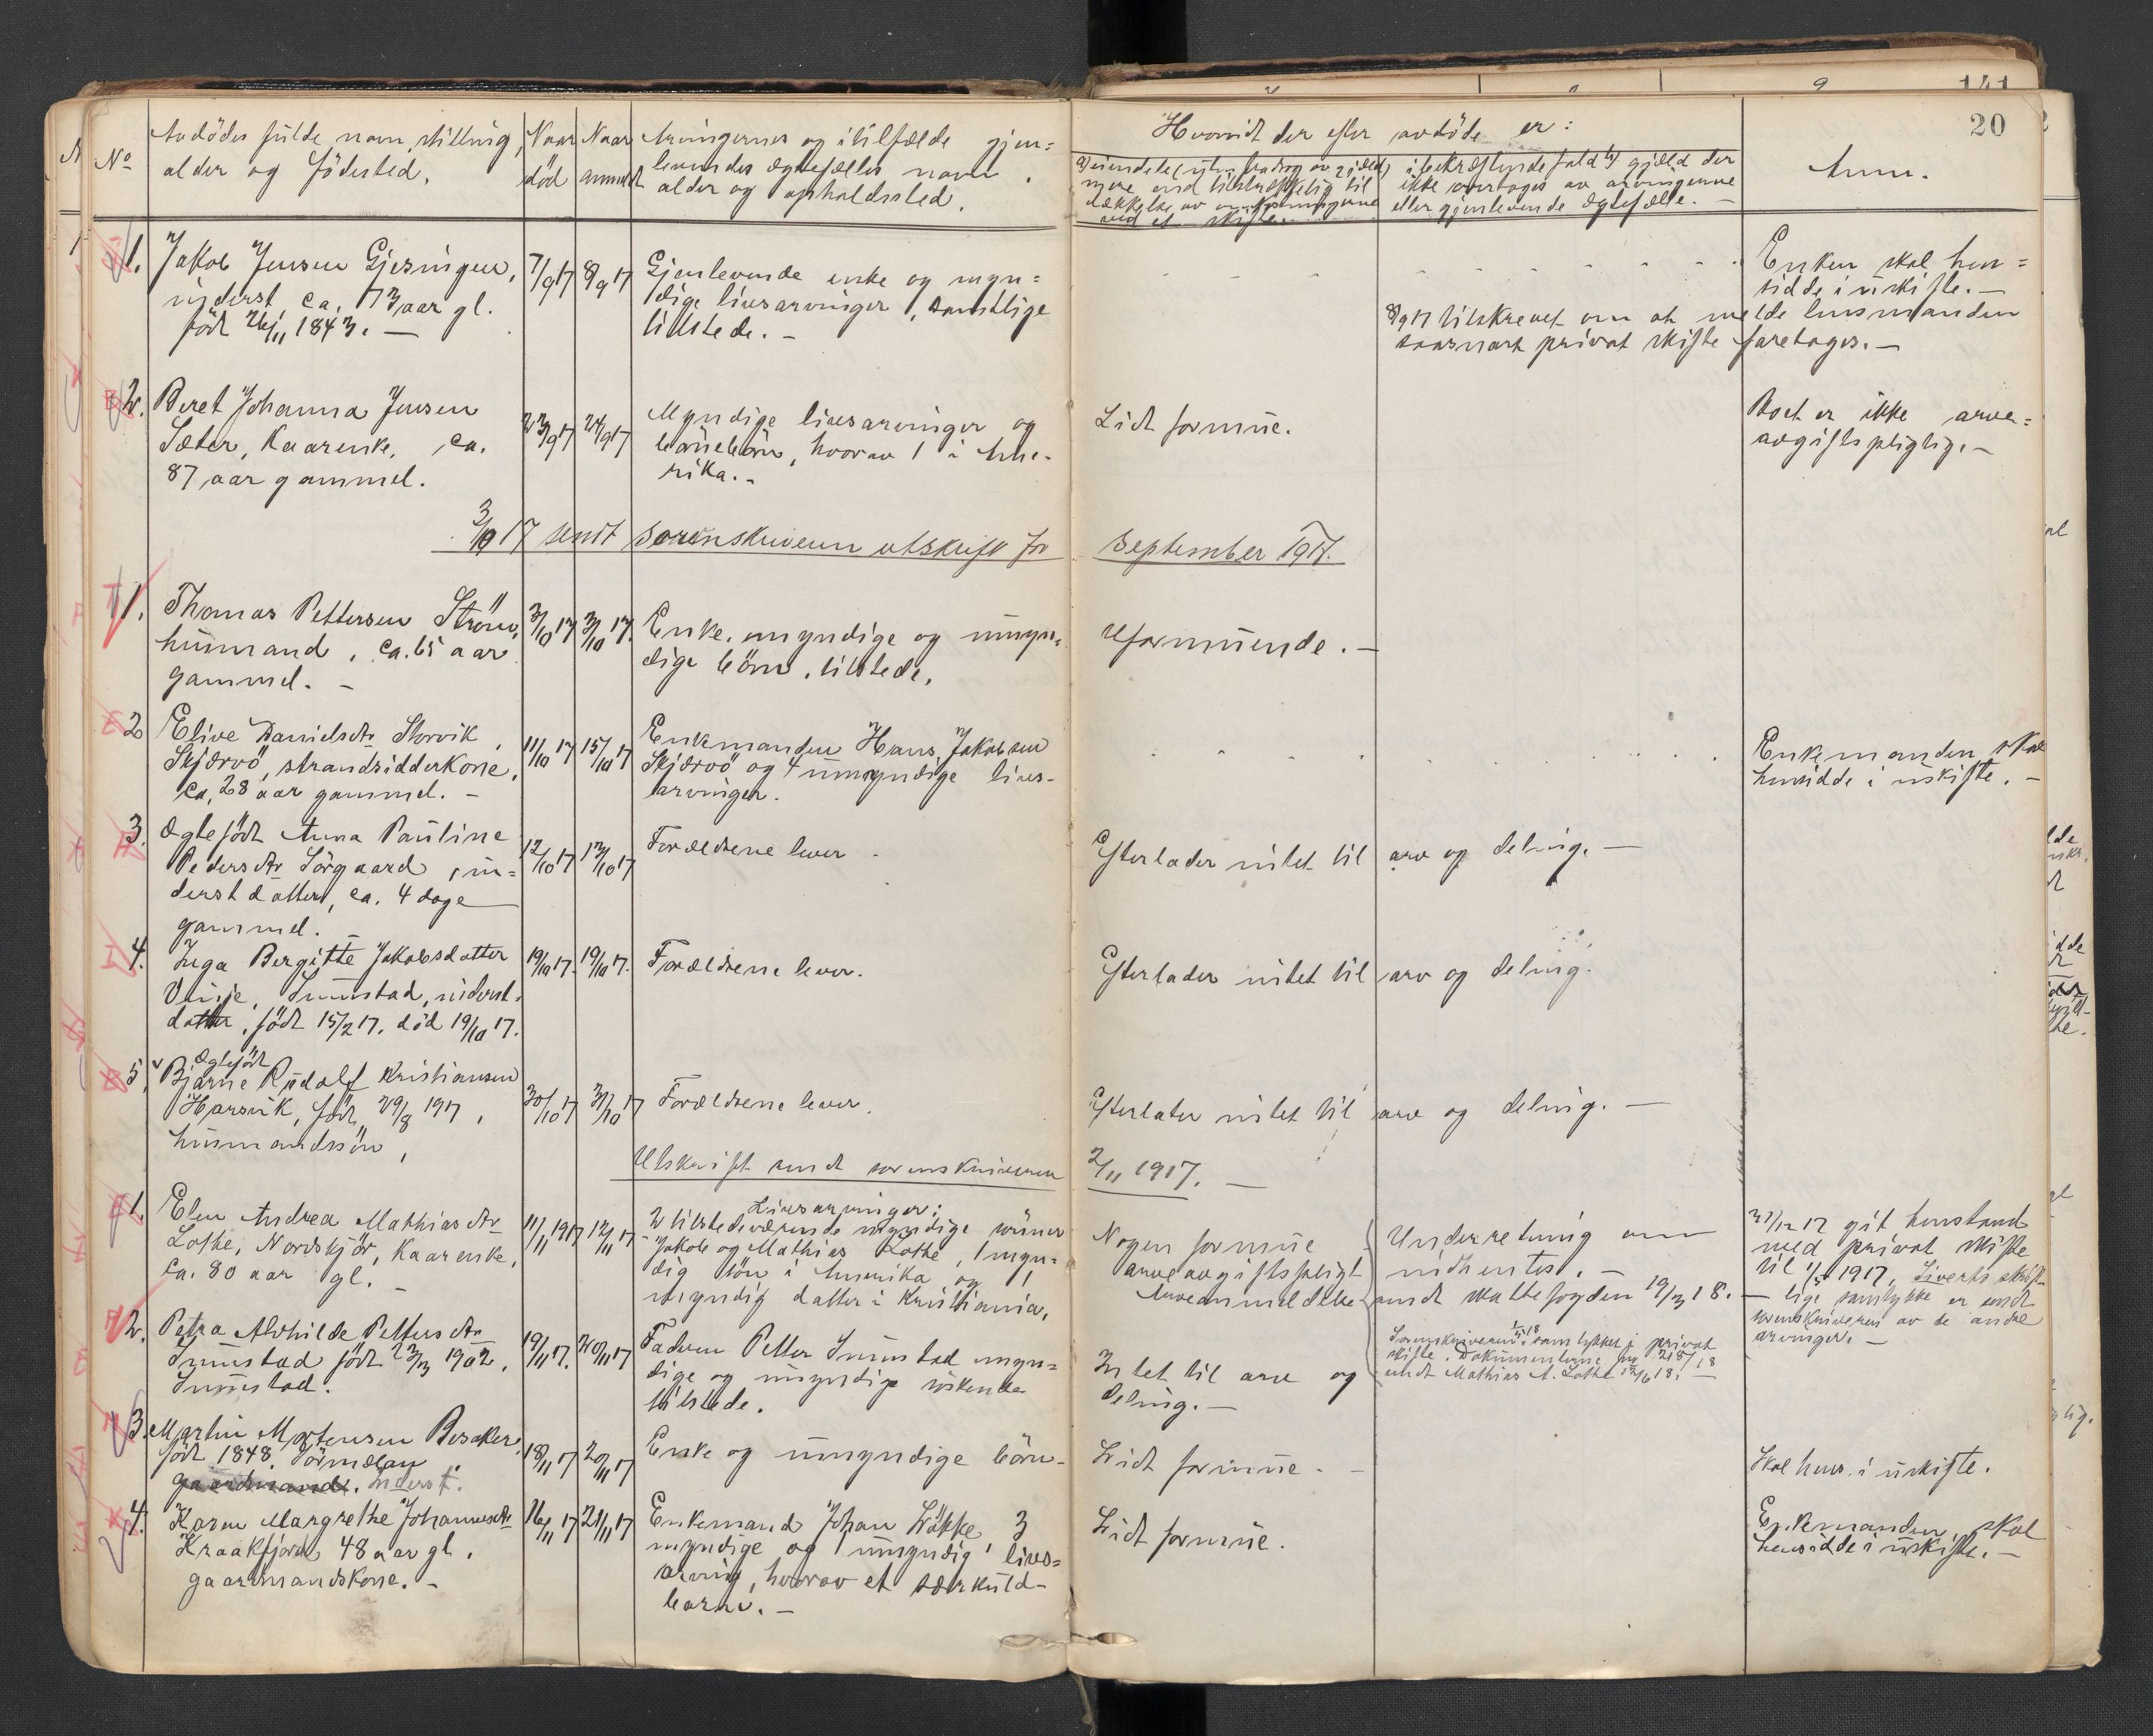 20
No
Avdödes fulde navn, stilling,
alder og födested.
Naar
död
Naar
anmeldt
Arvingernes og i tilfælde gjen=
levendes ægtefælles navn,
alder og opholdssted.
Hvorvidt der efter avdöde er:
mere end tilstrækkelig til
dækkelse av omkostningerne
ved et skifte.
i bekræftende fald b) gjæld der
ikke overtages av arvingerne
eller gjenlevende ægtefælle. —
Anm.
1. Jakob Jensen Gjesingen,
inderst, ca. 73 aar gl.
födt 26/11 1843. —
7/9 17
8/9 17
Gjenlevende enke og myn=
dige livsarvinger, samtlige
tilstede. —
8/9 17 tilskrevet om at melde lensmanden
saasnart privat skifte foretages. —
Enken skal hen=
sidde i uskifte. —
2. Beret Johanna Jensen
Sæter, Kaarenke, ca.
87 aar gammel.
23/9 17
24/9 17
Myndige livsarvinger og
barnebörn, hvorav 1 i Ame-
rika. -
Lidt formue.
Boet er ikke arve=
avgiftspligtig. —
3/10 17 sendt sorenskriveren utskrift for september 1917.
1. Thomas Pettersen Ström,
husmand, ca. 65 aar
gammel. —
3/10 17
3/10 17.
Enke, myndige og umyn=
dige börn, tilstede.
Uformuende. —
2 Elive Danielsdtr Storvik,
Skjærvö, strandsidderkone,
ca. 28 aar gammel. —
11/10 17
15/10 17
Enkemanden Hans Jakobsen
Skjærvö og 4 umyndige livs-
arvinger.
Enkemanden skal
hensidde i uskifte. —
3. Ægtefödt Anna Pauline
Pedersdtr Sörgaard, in=
derstdatter, ca. 4 dage
gammel. —
12/10 17
13/10 17
Forældrene lever.
Efterlader intet til arv og deling. —
4. Inga Bergitte Jakobsdatter
Vinje, Sumstad, inderst-
datter, födt 15/2 17. död 19/10 17.
19/10 17.
19/10 17.
Forældrene lever.
Efterlader intet til arv og deling.
5. Ægtefödt
Bjarne Rudolf Kristiansen
Harsvik, födt 29/8 1917,
husmandssön,
30/10 17
31/10 17
Forældrene lever.
Efterlater intet til arv og deling. —
Utskrift sendt sorenskriveren 2/11 1917. —
1. Elen Andrea Mathiasdtr
Lothe, Nordskjör, Kaarenke,
ca. 80 aar gl. —
11/11 1917
12/11 17
Livsarvinger:
2 tilstedeværende myndige sönner
Jakob og Mathias Lothe, 1 myn=
dig sön i Amerika og 1
myndig datter i Kristiania.
Nogen formue
arveavgiftspligt
Arveanmeldelse sendt skattefogden 19/3 18.
Underretning om
indhentes. —
Sorenskriveren samtykket i privat
skifte. Dokumenterne
sendt Mathias A. Lothe 12/6 18. —
git henstand
med privat skifte
til 1/5 1917, Siverts skrift-
lige samtykke er sendt
sorenskriveren av de andre
arvinger. —
2. Petra Alvhilde Pettersdtr
Sumstad födt 23/3 1902,
Sumstad.
19/11 17.
20/11 17
Faderen Petter Sumstad myn=
dige og umyndige söskende
tilstede.
Intet til arv og
deling. —
3. Martin Mortensen Besaker,
födt 1848. Sörmelan
gaardmand. Inderst.
18/11 17
20/11 17
Enke og umyndige börn.
Lidt formue. —
Skal hens. i uskifte.
4. Karen Margrethe Johannesdtr
Kraakfjord, 48 aar gl.
gaardmandskone. —
16/11 17
21/11 17
Enkemand Johan Løkke, 3
myndige og 1 umyndig livs=
arving, hvorav et særkuld-
barn. —
Lidt formue.
Enkemanden skal
hensidde i uskifte. —